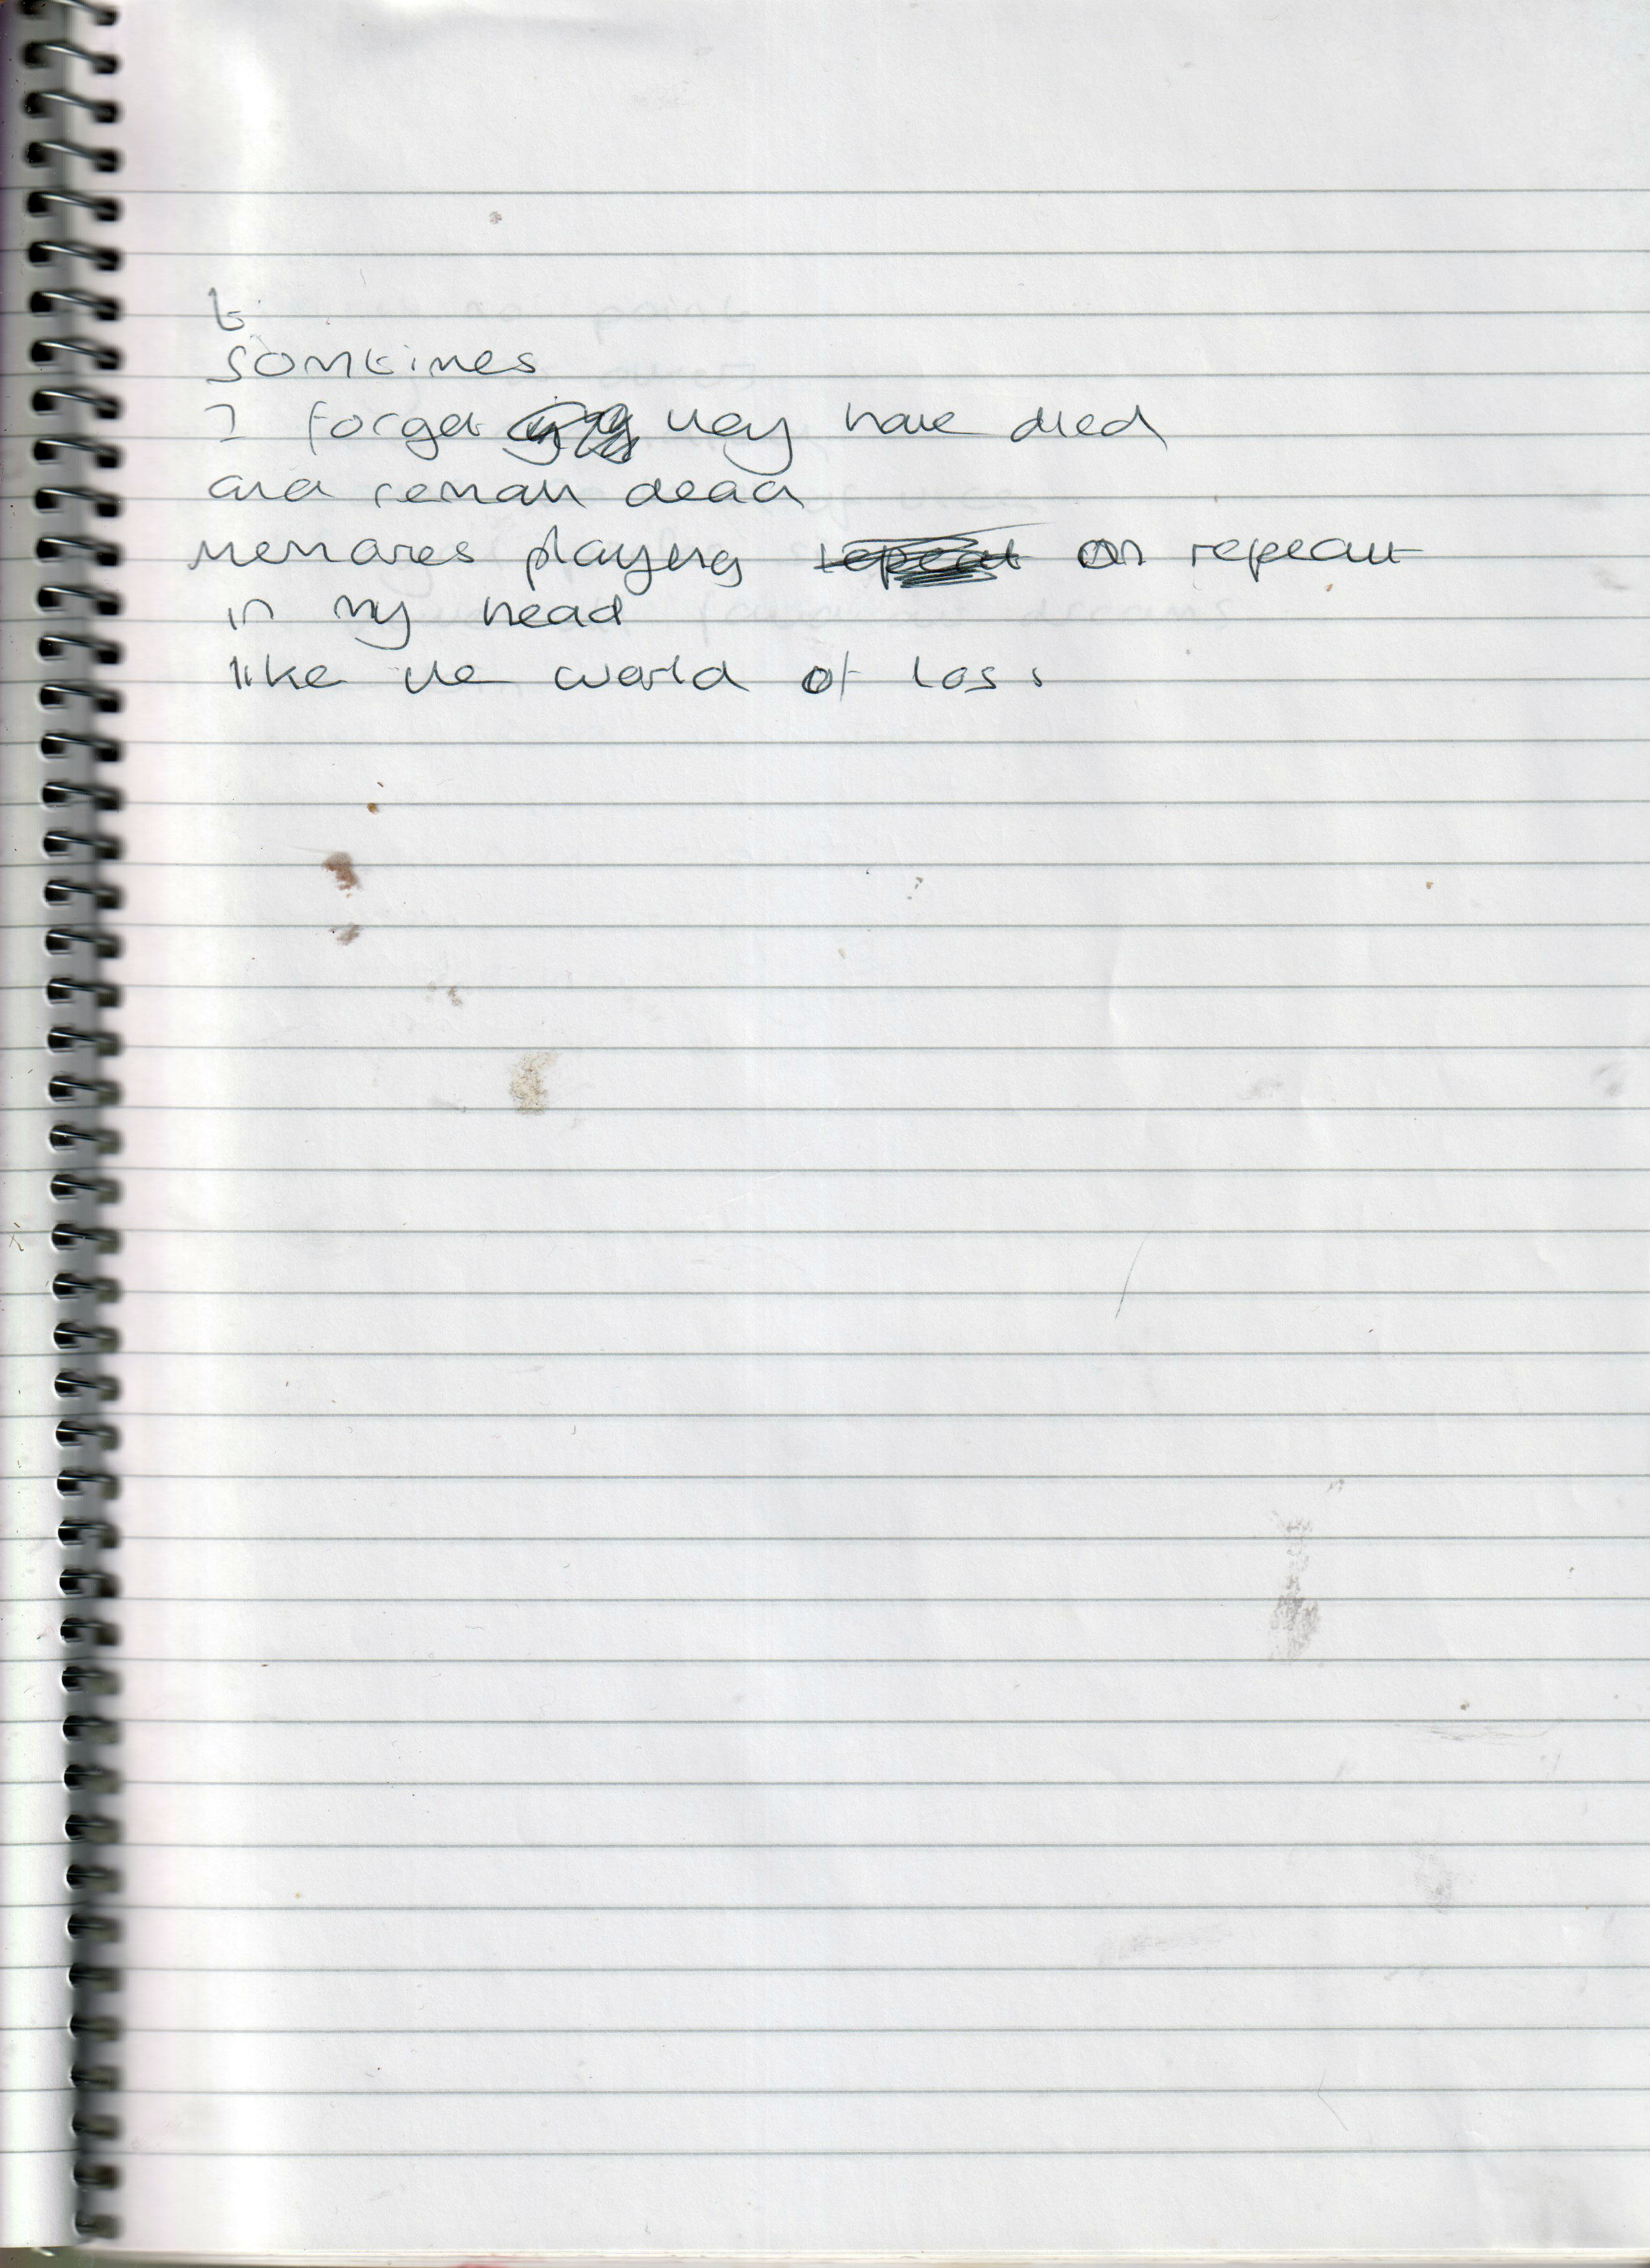 t
Somtimes
I forget they have died
and remain dead
memories playing repeat on repeat
in my head
like the world of loss